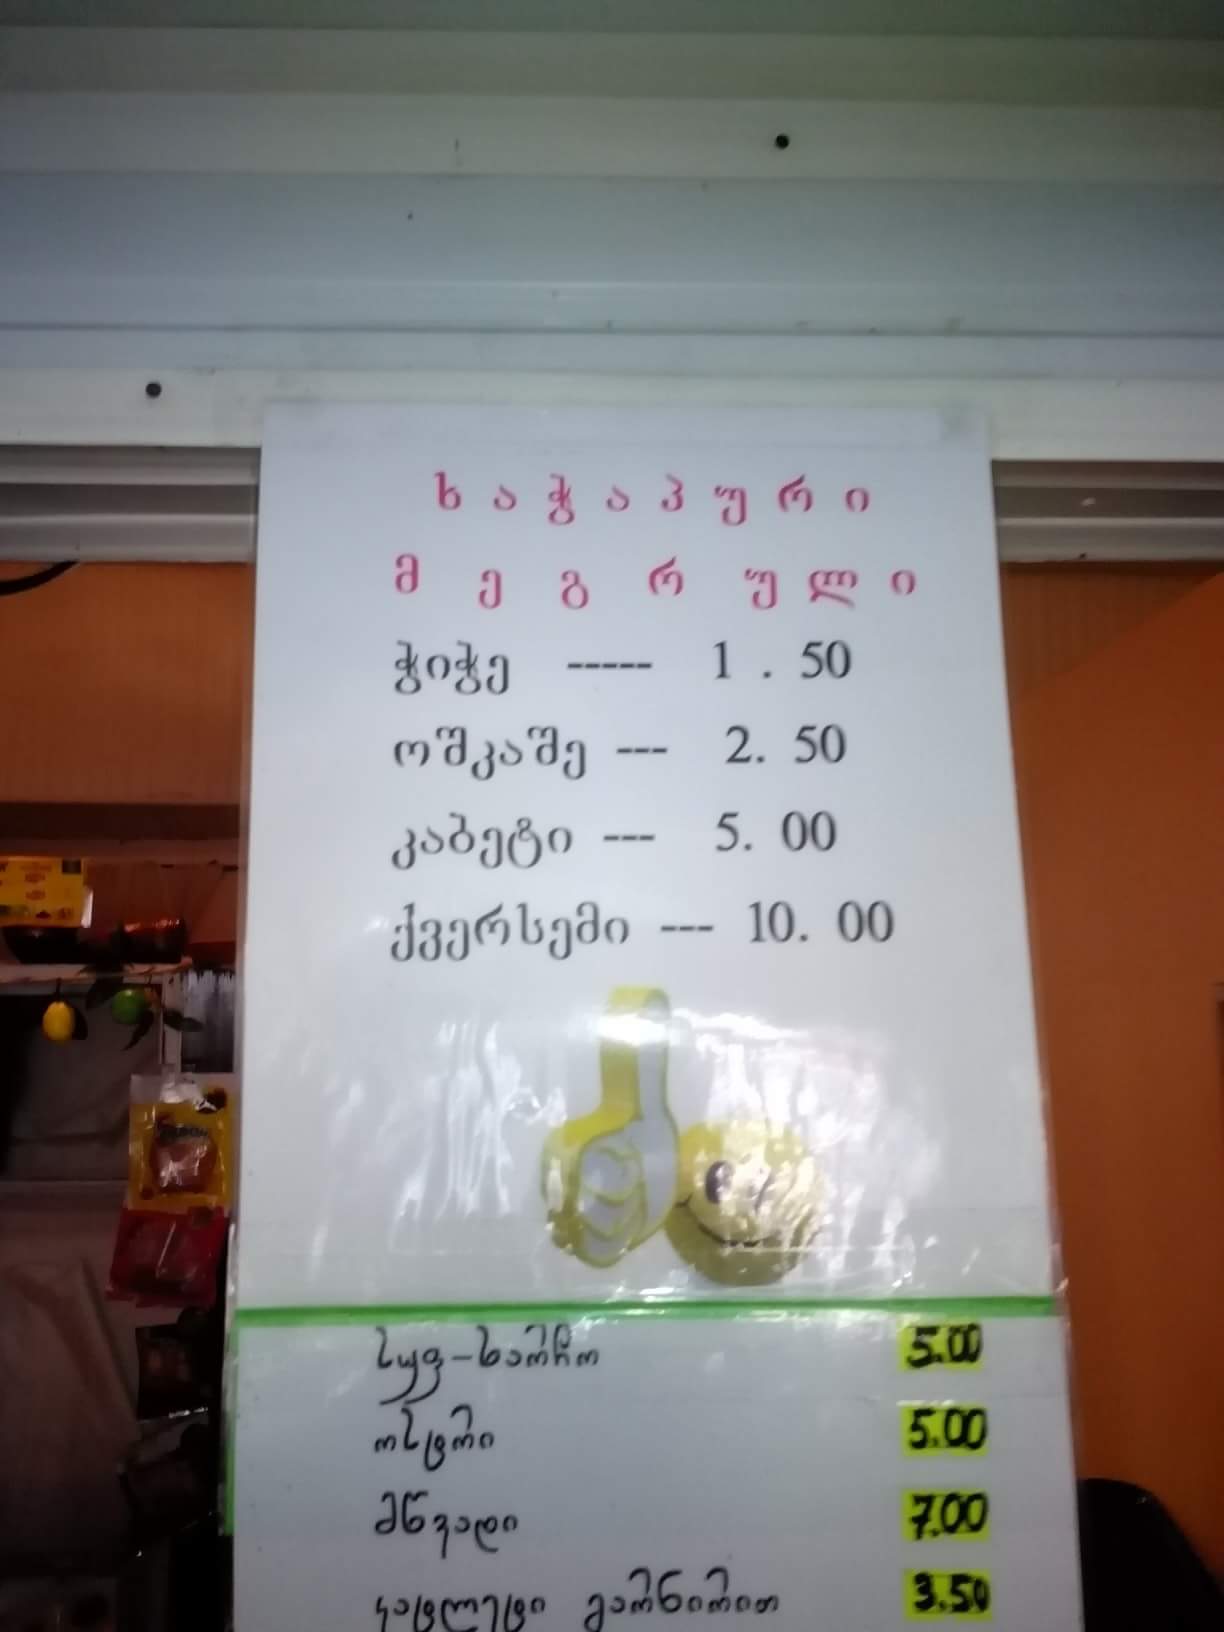 ხაჭაპური
მეგრული
ჭიჭე ----- 1 . 50
ოშკაშე --- 2. 50
კაბეტი --- 5. 00
ქვერსემი --- 10. 00
სუფ-ხარჩო 5.00
ოსტრი 5.00
მწვადი 7.00
კატლეტი გარნირით 3.50